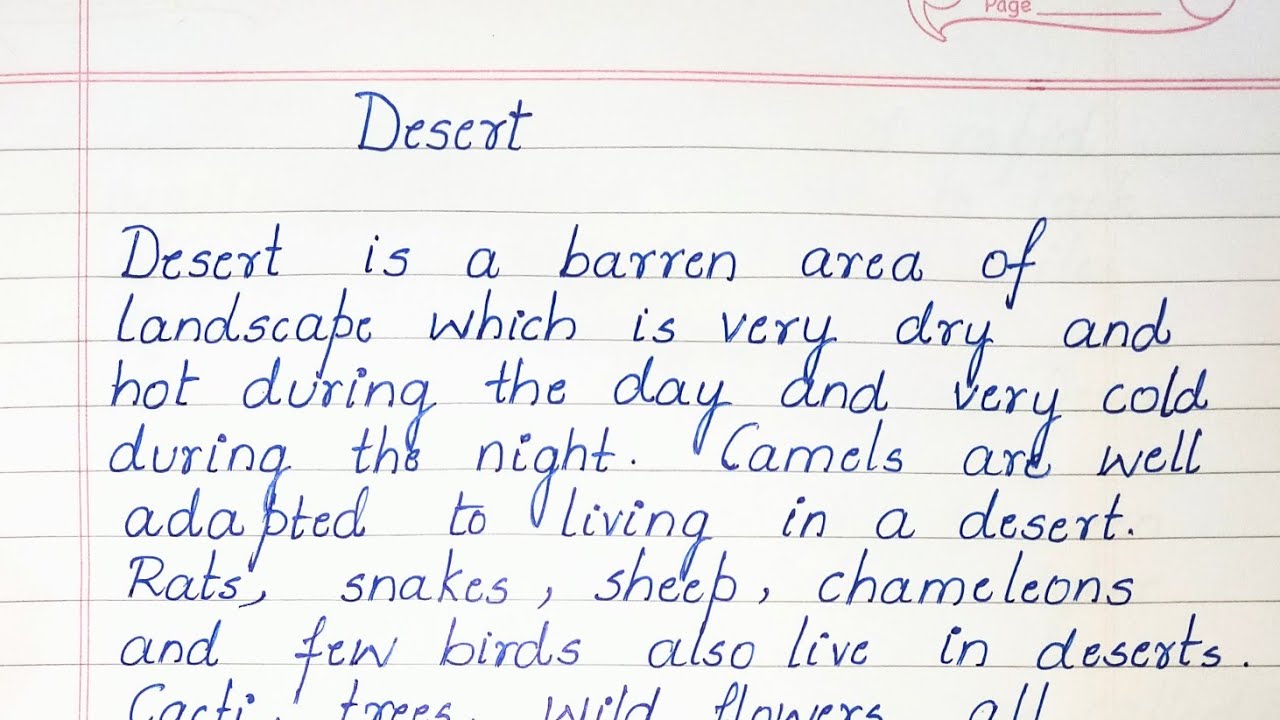 Page
Desert
Desert is a barren area of
landscape which is very dry and
hot during the day and very cold
during the night. Camels are well
adapted to living in a desert.
Rats, snakes, sheep, chameleons
and few birds also live in deserts.
Cacti, trees, wild flowers all